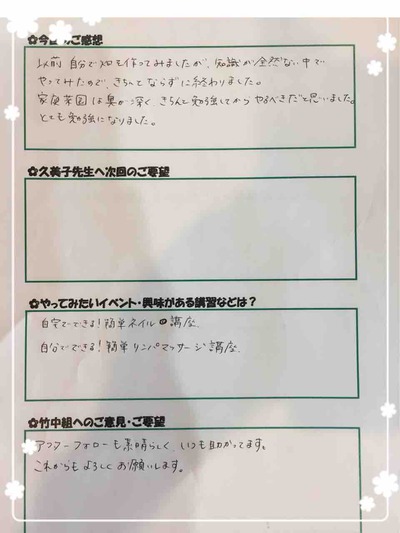 ✿今日のご感想
以前 自分で畑も作ってみましたが、知識が全然ない中で
やってみたので、きちんとならずに終わりました。
家庭菜園は奥が深く きちんと勉強してから やるべきだと思いました。
とても勉強になりました。
✿久美子先生へ次回のご要望
✿やってみたいイベント・興味がある講習などは?
自宅でできる!簡単ネイル講座。
自分でできる!簡単リンパマッサージ講座。
✿竹中組へのご意見・ご要望
アフターフォローも素晴らしく、いつも助かってます。
これからも よろしく お願いします。